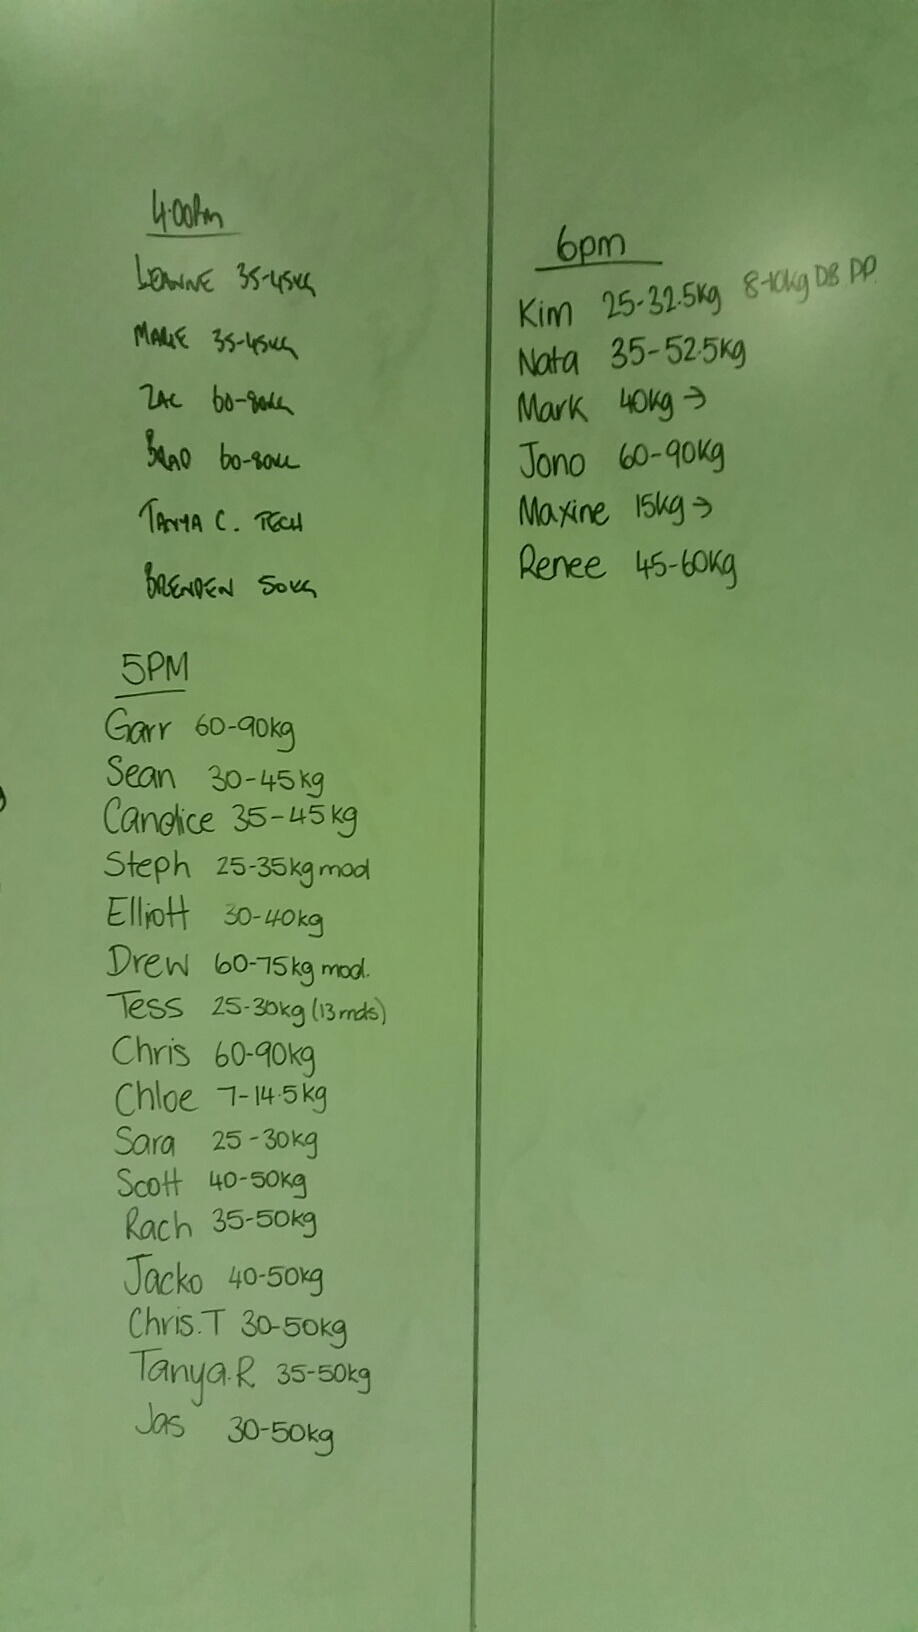 4:00pm
LEANNE 35-45KG
MARIE 35-45KG
ZAC 60-80KG
BRAD 60-80KG
TANYA C. TECH
BRENDEN 50KG
5PM
Garr 60-90kg
Sean 30-45kg
Candice 35-45kg
Steph 25-35kg mod
Elliott 30-40kg
Drew 60-75kg mod.
Tess 25-30kg (13 rnds)
Chris 60-90kg
Chloe 7-14.5kg
Sara 25-30kg
Scott 40-50kg
Rach 35-50kg
Jacko 40-50kg
Chris.T 30-50kg
Tanya.R 35-50kg
Jas 30-50kg
6pm
Kim 25-32.5kg 8-10kg DB PP
Nata 35-52.5kg
Mark 40kg →
Jono 60-90kg
Maxine 15kg →
Renee 45-60kg